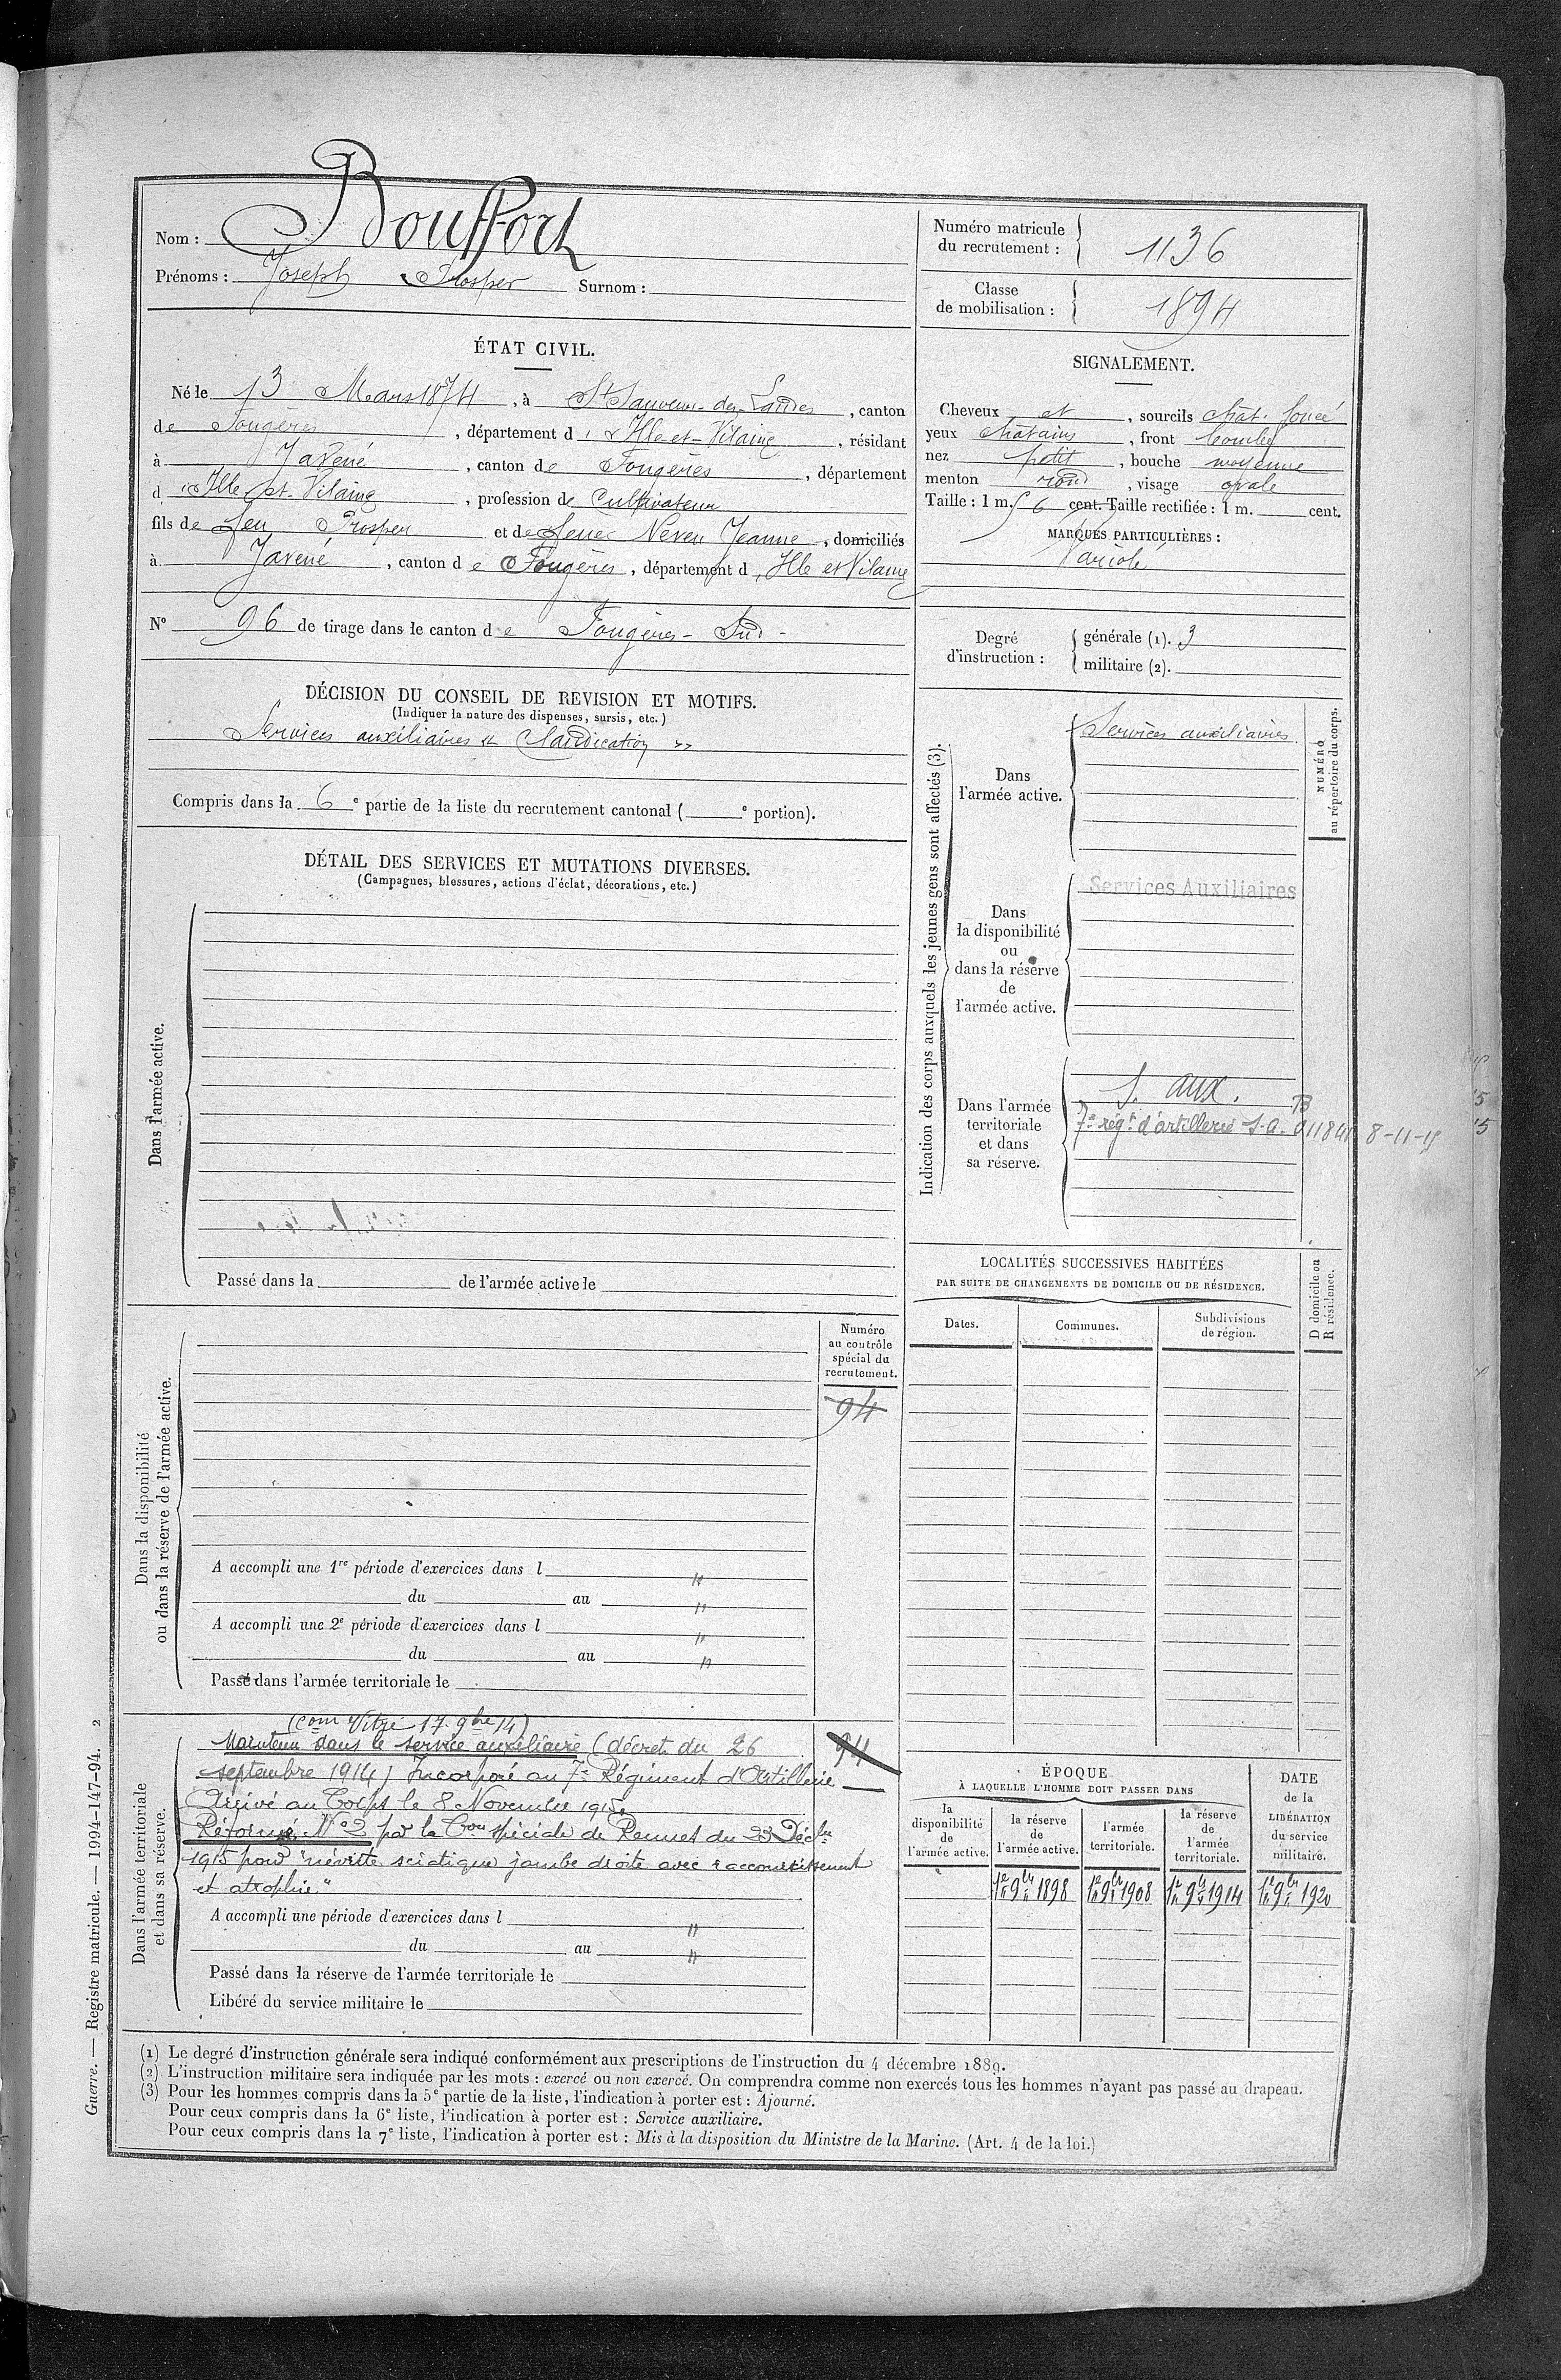 Nom : Bouffort
Prénoms : Joseph Prosper Surnom :
Numéro matricule du recrutement : 1136
Classe de mobilisation : 1894
ÉTAT CIVIL.
Né le 13 Mars 1874, à St Sauveur-des-Landes, canton
de Fougères, département d'Ille-et-Vilaine, résidant
à Javené, canton de Fougères, département
d'Ille-et-Vilaine, profession de Cultivateur
fils de feu Prosper et de feue Neveu Jeanne, domiciliés
à Javené, canton de Fougères, département d'Ille et Vilaine
N° 96 de tirage dans le canton de Fougères-Sud-
SIGNALEMENT.
Cheveux et, sourcils chat. foncé
yeux châtains, front bombé
nez petit, bouche moyenne
menton rond, visage ovale
Taille : 1 m. 56 cent. Taille rectifiée : 1 m. cent.
MARQUES PARTICULIÈRES :
Variolé
Degré d'instruction : générale (1). 3
militaire (2).
DÉCISION DU CONSEIL DE REVISION ET MOTIFS.
(Indiquer la nature des dispenses, sursis, etc.)
Services auxiliaires « Claudication »
Compris dans la 6e partie de la liste du recrutement cantonal ( e portion).
DÉTAIL DES SERVICES ET MUTATIONS DIVERSES.
(Campagnes, blessures, actions d'éclat, décorations, etc.)
Dans l'armée active.
Passé dans la de l'armée active le
Indication des corps auxquels les jeunes gens sont affectés (3).
NUMÉRO au répertoire du corps.
Dans l'armée active.
Services auxiliaires
Dans la disponibilité ou dans la réserve de l'armée active.
Services Auxiliaires
Dans l'armée territoriale et dans sa réserve.
S. aux.
7e régt d'artillerie S.A. 8-11-15
LOCALITÉS SUCCESSIVES HABITÉES
PAR SUITE DE CHANGEMENTS DE DOMICILE OU DE RÉSIDENCE.
Dates. Communes. Subdivisions de région. D domicile ou R résidence.
Dans la disponibilité ou dans la réserve de l'armée active.
Numéro au contrôle spécial du recrutement.
94
A accompli une 1re période d'exercices dans l "
du au "
A accompli une 2e période d'exercices dans l "
du au "
Passé dans l'armée territoriale le
Dans l'armée territoriale et dans sa réserve.
(Com Vitré 17-9bre 14)
Maintenu dans le service auxiliaire (décret du 26
94
septembre 1914) Incorporé au 7e Régiment d'Artillerie
Arrivé au Corps le 8 Novembre 1915.
Réformé N°2 par la Con spéciale de Rennes du 23 Décbre
1915 pour "névrite sciatique jambe droite avec raccourcissement
et atrophie"
A accompli une période d'exercices dans l "
du au "
Passé dans la réserve de l'armée territoriale le
Libéré du service militaire le
ÉPOQUE
À LAQUELLE L'HOMME DOIT PASSER DANS
DATE de la LIBÉRATION du service militaire.
la disponibilité de l'armée active.
la réserve de l'armée active.
l'armée territoriale.
la réserve de l'armée territoriale.
1er 9bre 1898 1er 9bre 1908 1er 9bre 1914 1er 9bre 1920
(1) Le degré d'instruction générale sera indiqué conformément aux prescriptions de l'instruction du 4 décembre 1889.
(2) L'instruction militaire sera indiquée par les mots : exercé ou non exercé. On comprendra comme non exercés tous les hommes n'ayant pas passé au drapeau.
(3) Pour les hommes compris dans la 5e partie de la liste, l'indication à porter est : Ajourné.
Pour ceux compris dans la 6e liste, l'indication à porter est : Service auxiliaire.
Pour ceux compris dans la 7e liste, l'indication à porter est : Mis à la disposition du Ministre de la Marine. (Art. 4 de la loi.)
Guerre. — Registre matricule. — 1994-147-94. 2